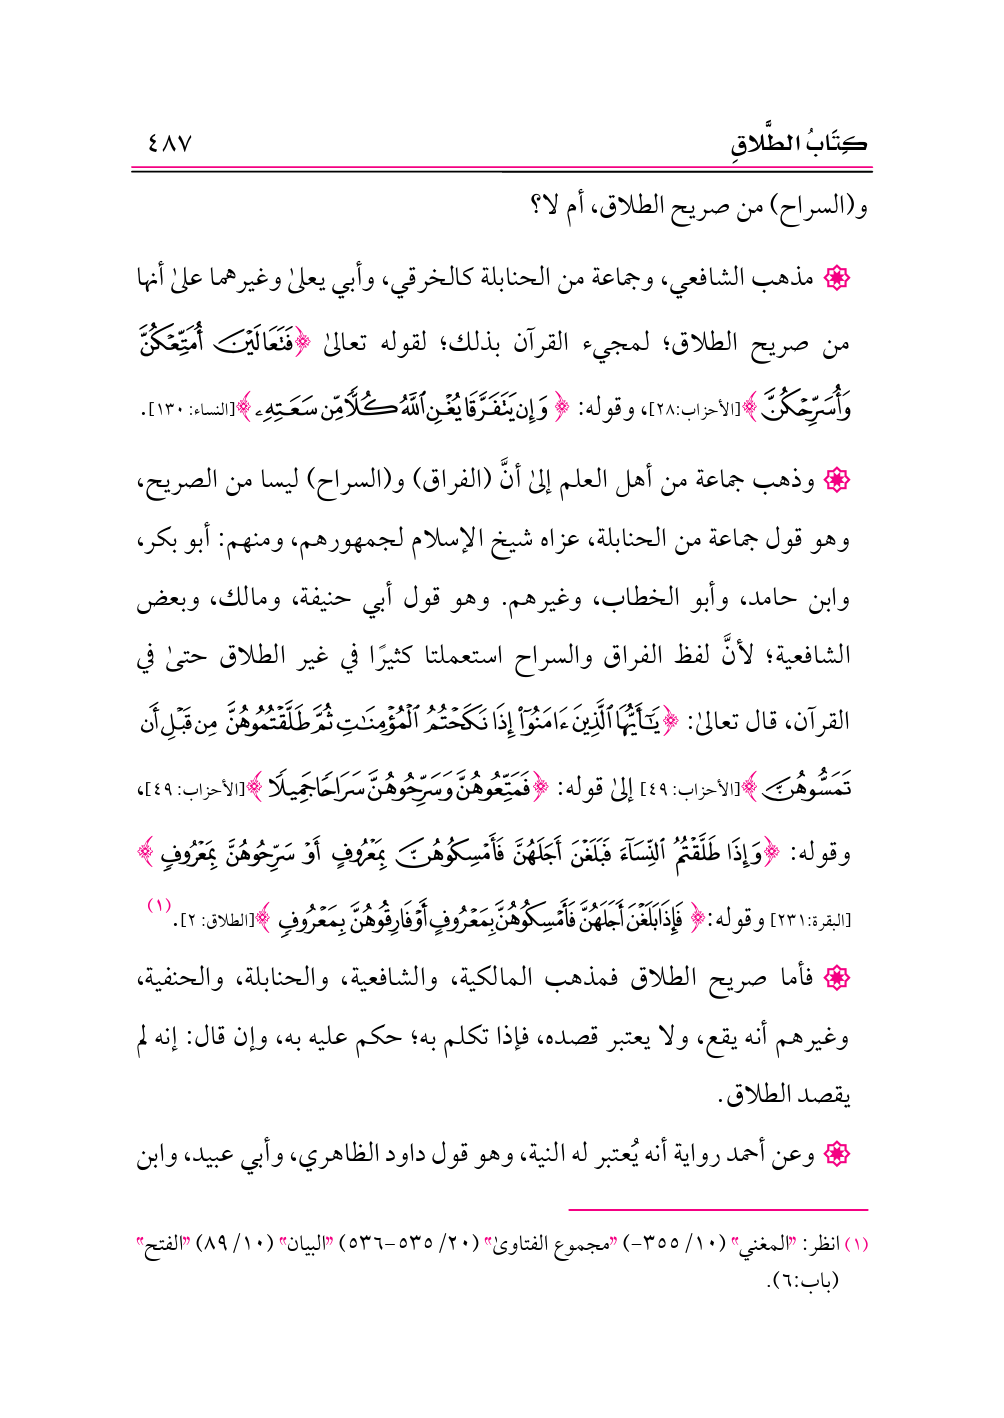 كِتَابُ الطَّلاقِ ٤٨٧
و(السراح) من صريح الطلاق، أم لا؟
مذهب الشافعي، وجماعة من الحنابلة كالخرقي، وأبي يعلىٰ وغيرهما علىٰ أنها
من صريح الطلاق؛ لمجيء القرآن بذلك؛ لقوله تعالىٰ ﴿فَتَعَالَيْنَ أُمَتِّعْكُنَّ
وَأُسَرِّحْكُنَّ﴾[الأحزاب:٢٨]، وقوله: ﴿وَإِن يَتَفَرَّقَا يُغْنِ ٱللَّهُ كُلًّا مِّن سَعَتِهِۦ﴾[النساء: ١٣٠].
وذهب جماعة من أهل العلم إلىٰ أنَّ (الفراق) و(السراح) ليسا من الصريح،
وهو قول جماعة من الحنابلة، عزاه شيخ الإسلام لجمهورهم، ومنهم: أبو بكر،
وابن حامد، وأبو الخطاب، وغيرهم. وهو قول أبي حنيفة، ومالك، وبعض
الشافعية؛ لأنَّ لفظ الفراق والسراح استعملتا كثيرًا في غير الطلاق حتىٰ في
القرآن، قال تعالىٰ: ﴿يَٰٓأَيُّهَا ٱلَّذِينَ ءَامَنُوٓا۟ إِذَا نَكَحْتُمُ ٱلْمُؤْمِنَٰتِ ثُمَّ طَلَّقْتُمُوهُنَّ مِن قَبْلِ أَن
تَمَسُّوهُنَّ﴾[الأحزاب: ٤٩] إلىٰ قوله: ﴿فَمَتِّعُوهُنَّ وَسَرِّحُوهُنَّ سَرَاحًا جَمِيلًا﴾[الأحزاب: ٤٩]،
وقوله: ﴿وَإِذَا طَلَّقْتُمُ ٱلنِّسَآءَ فَبَلَغْنَ أَجَلَهُنَّ فَأَمْسِكُوهُنَّ بِمَعْرُوفٍ أَوْ سَرِّحُوهُنَّ بِمَعْرُوفٍ﴾
[البقرة:٢٣١] وقوله:﴿فَإِذَا بَلَغْنَ أَجَلَهُنَّ فَأَمْسِكُوهُنَّ بِمَعْرُوفٍ أَوْ فَارِقُوهُنَّ بِمَعْرُوفٍ﴾[الطلاق: ٢].(١)
فأما صريح الطلاق فمذهب المالكية، والشافعية، والحنابلة، والحنفية،
وغيرهم أنه يقع، ولا يعتبر قصده، فإذا تكلم به؛ حكم عليه به، وإن قال: إنه لم
يقصد الطلاق.
وعن أحمد رواية أنه يُعتبر له النية، وهو قول داود الظاهري، وأبي عبيد، وابن
(١) انظر: "المغني" (١٠/ ٣٥٥-) "مجموع الفتاوىٰ" (٢٠/ ٥٣٥-٥٣٦) "البيان" (١٠/ ٨٩) "الفتح"
(باب:٦).